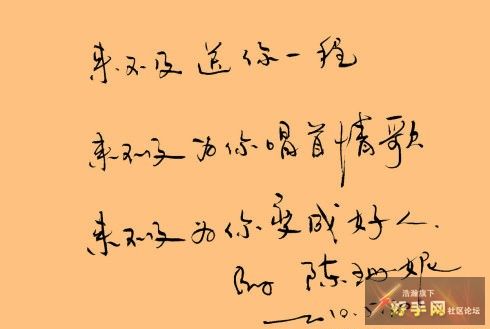 来不及送你一程
来不及为你唱首情歌
来不及为你变成好人.
By 陈珊妮
浩瀚旗下
好手网社区论坛